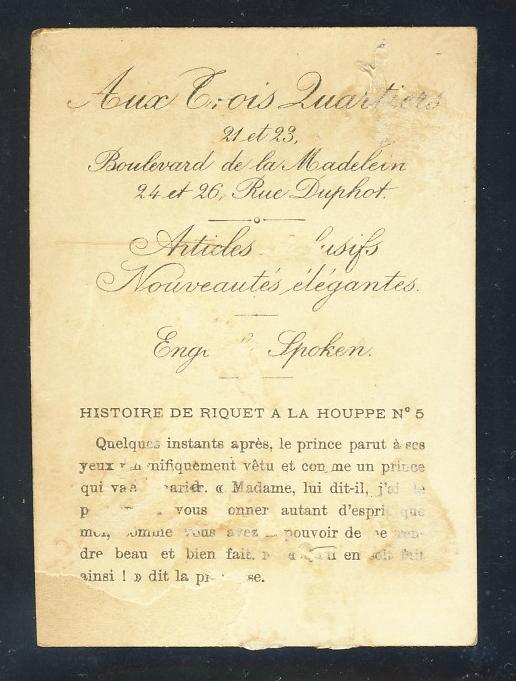 Aux Trois Quartiers
21 et 23,
Boulevard de la Madelein
24 et 26, Rue Duphot.
Articles
Nouveautés élégantes.
Spoken.
HISTOIRE DE RIQUET A LA HOUPPE Nº 5
Quelques instants après, le prince parut à ses
yeux vêtu et comme un prince
qui va « Madame, lui dit-il, j'ai le
vous autant d'esprit que
moi, comme vous avez pouvoir de
dre beau et bien fait. en soit fait
ainsi ! » dit la